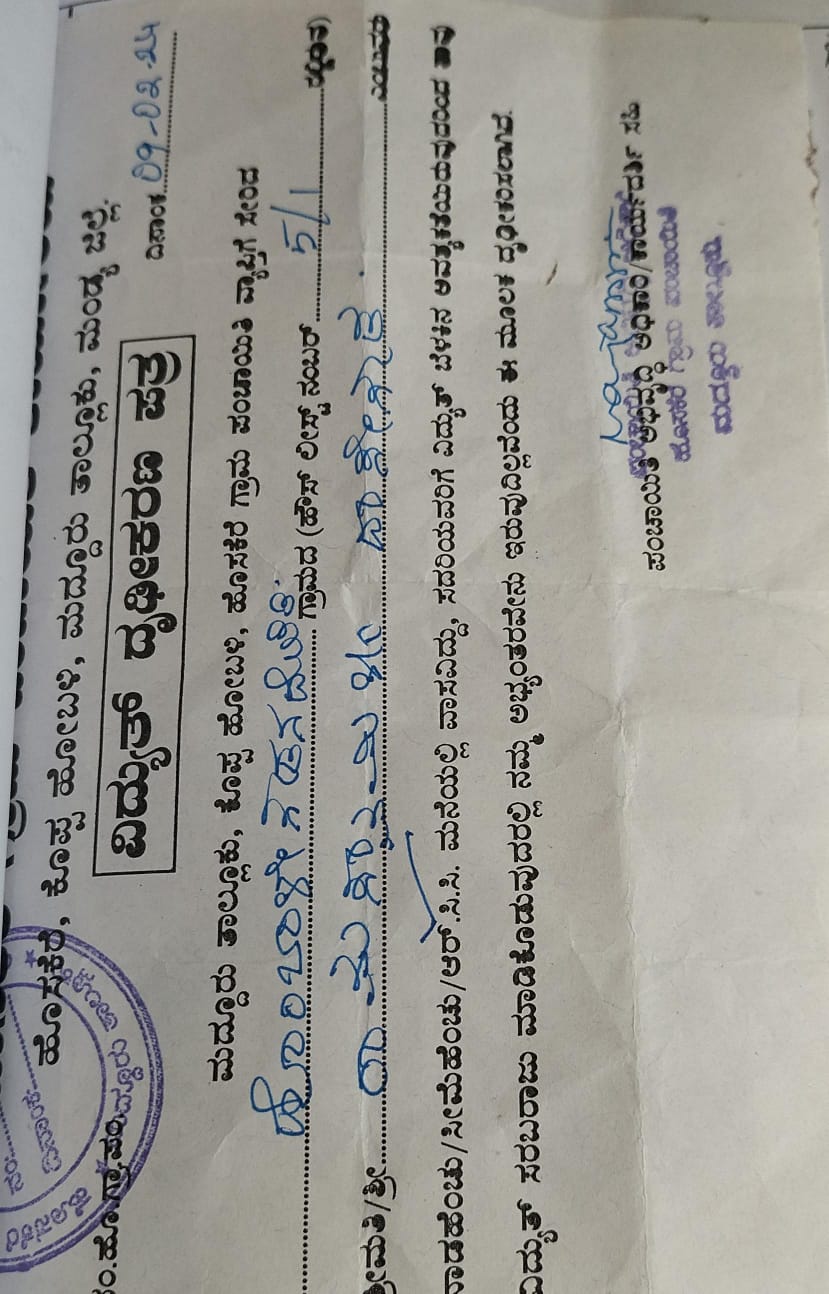 ಹೊಸಕೆರೆ, ಕೊಪ್ಪ ಹೋಬಳಿ, ಮದ್ದೂರು ತಾಲ್ಲೂಕು, ಮಂಡ್ಯ ಜಿಲ್ಲೆ.
ದಿನಾಂಕ 09-02-24
ವಿದ್ಯುತ್ ದೃಢೀಕರಣ ಪತ್ರ
ಮದ್ದೂರು ತಾಲ್ಲೂಕು, ಕೊಪ್ಪ ಹೋಬಳಿ, ಹೊಸಕೆರೆ ಗ್ರಾಮ ಪಂಚಾಯಿತಿ ವ್ಯಾಪ್ತಿಗೆ ಸೇರಿದ
ಗ್ರಾಮದ (ಹೌಸ್ ಲೀಸ್ಟ್ ನಂಬರ್ 5/1
ಶ್ರೀಮತಿ/ಶ್ರೀ
ನಾಡಹೆಂಚು/ಸೀಮೆಹೆಂಚು/ಆರ್.ಸಿ.ಸಿ. ಮನೆಯಲ್ಲಿ ವಾಸವಿದ್ದು, ಸದರಿಯವರಿಗೆ ವಿದ್ಯುತ್ ಬೆಳಕಿನ ಅವಶ್ಯಕತೆಯಿರುವುದರಿಂದ
ವಿದ್ಯುತ್ ಸರಬರಾಜು ಮಾಡಿಕೊಡುವುದರಲ್ಲಿ ನಮ್ಮ ಅಭ್ಯಂತರವೇನು ಇರುವುದಿಲ್ಲವೆಂದು ಈ ಮೂಲಕ ದೃಢೀಕರಿಸಲಾಗಿದೆ.
ಪಂಚಾಯಿತಿ ಅಭಿವೃದ್ಧಿ ಅಧಿಕಾರಿ/ಕಾರ್ಯದರ್ಶಿ ಸಹಿ
ಹೊಸಕೆರೆ ಗ್ರಾಮ ಪಂಚಾಯಿತಿ
ಮದ್ದೂರು ತಾಲ್ಲೂಕು